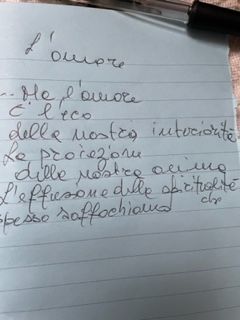 L'amore
... Ma l'amore
è l'eco
della nostra interiorità
La proiezione
della nostra anima
L'effusione della spiritualità
che
spesso soffochiamo